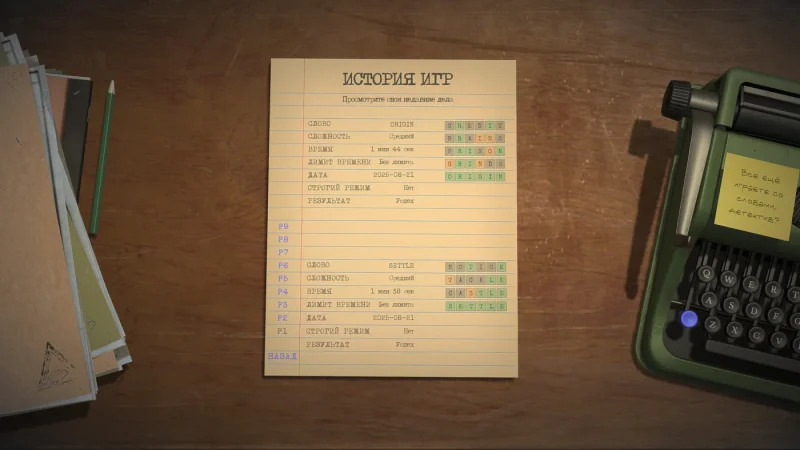 ИСТОРИЯ ИГР
Просмотрите свои недавние дела
СЛОВО ORIGIN
СЛОЖНОСТЬ Средний
ВРЕМЯ 1 мин 44 сек
ЛИМИТ ВРЕМЕНИ Без лимита
ДАТА 2025-08-21
СТРОГИЙ РЕЖИМ Нет
РЕЗУЛЬТАТ Успех
ORIGIN
P9
P8
P7
P6
P5
P4
P3
P2
P1
НАЗАД
СЛОВО SETTLE
СЛОЖНОСТЬ Средний
ВРЕМЯ 1 мин 38 сек
ЛИМИТ ВРЕМЕНИ Без лимита
ДАТА 2025-08-21
СТРОГИЙ РЕЖИМ Нет
РЕЗУЛЬТАТ Успех
SETTLE
Все ещё
играете со
словами,
детектив?
Q W E R T
A S D F
Z X C V